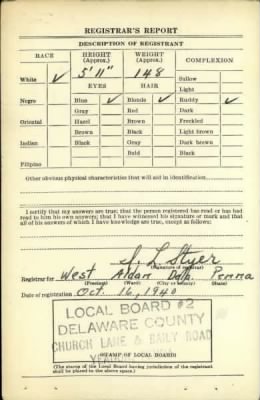 REGISTRAR'S REPORT
DESCRIPTION OF REGISTRANT
RACE HEIGHT (Approx.) WEIGHT (Approx.) COMPLEXION
White ✓ 5' 11" 148 Sallow
EYES HAIR Light
Negro Blue ✓ Blonde ✓ Ruddy ✓
Gray Red Dark
Oriental Hazel Brown Freckled
Brown Black Light brown
Indian Black Gray Dark brown
Bald Black
Filipino
Other obvious physical characteristics that will aid in identification
I certify that my answers are true; that the person registered has read or has had
read to him his own answers; that I have witnessed his signature or mark and that
all of his answers of which I have knowledge are true, except as follows:
S. L. Styer
(Signature of registrar)
Registrar for West Aldan Dela. Penna
(Precinct) (Ward) (City or county) (State)
Date of registration Oct. 16, 1940
LOCAL BOARD #2
DELAWARE COUNTY
CHURCH LANE & BAILY ROAD
(STAMP OF LOCAL BOARD)
(The stamp of the Local Board having jurisdiction of the registrant
shall be placed in the above space.)